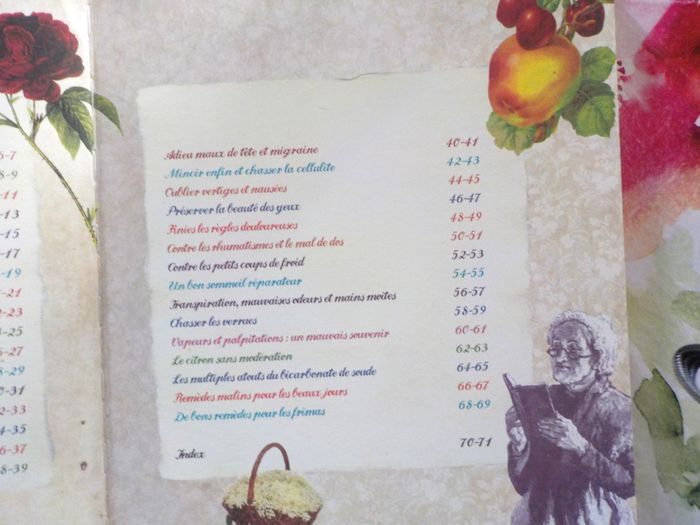 6-7
8-9
-11
-13
-15
-17
-19
-21
-23
-25
-27
8-29
0-31
2-33
4-35
6-37
8-39
Adieu maux de tête et migraine 40-41
Mincir enfin et chasser la cellulite 42-43
Oublier vertiges et nausées 44-45
Préserver la beauté des yeux 46-47
Finies les règles douloureuses 48-49
Contre les rhumatismes et le mal de dos 50-51
Contre les petits coups de froid 52-53
Un bon sommeil réparateur 54-55
Transpiration, mauvaises odeurs et mains moites 56-57
Chasser les verrues 58-59
Vapeurs et palpitations : un mauvais souvenir 60-61
Le citron sans modération 62-63
Les multiples atouts du bicarbonate de soude 64-65
Remèdes malins pour les beaux jours 66-67
De bons remèdes pour les frimas 68-69
Index 70-71